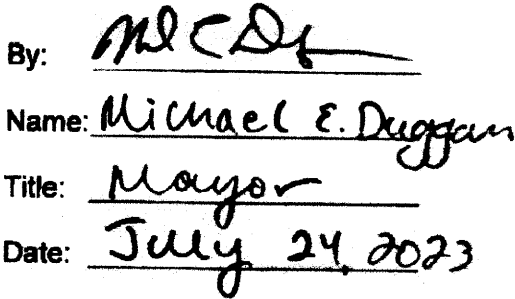 By:
Name: Michael E. Duggan
Title: Mayor
Date: July 24, 2023